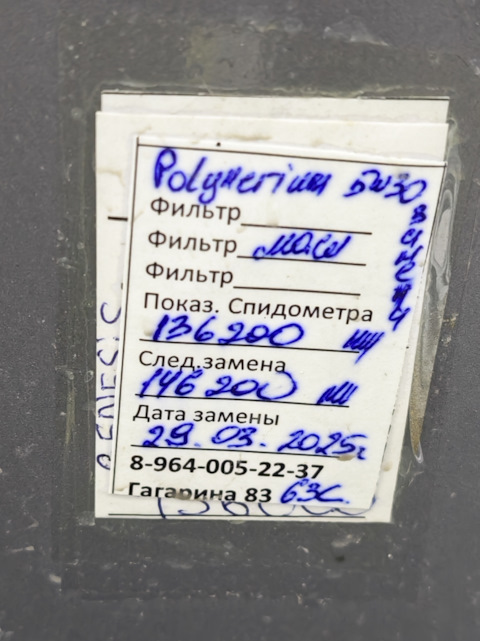 Polymerium 5W30
Фильтр
Фильтр масл
Фильтр
Показ. Спидометра
136200
След.замена
146200
Дата замены
29.03.2025г
8-964-005-22-37
Гагарина 83 63С.